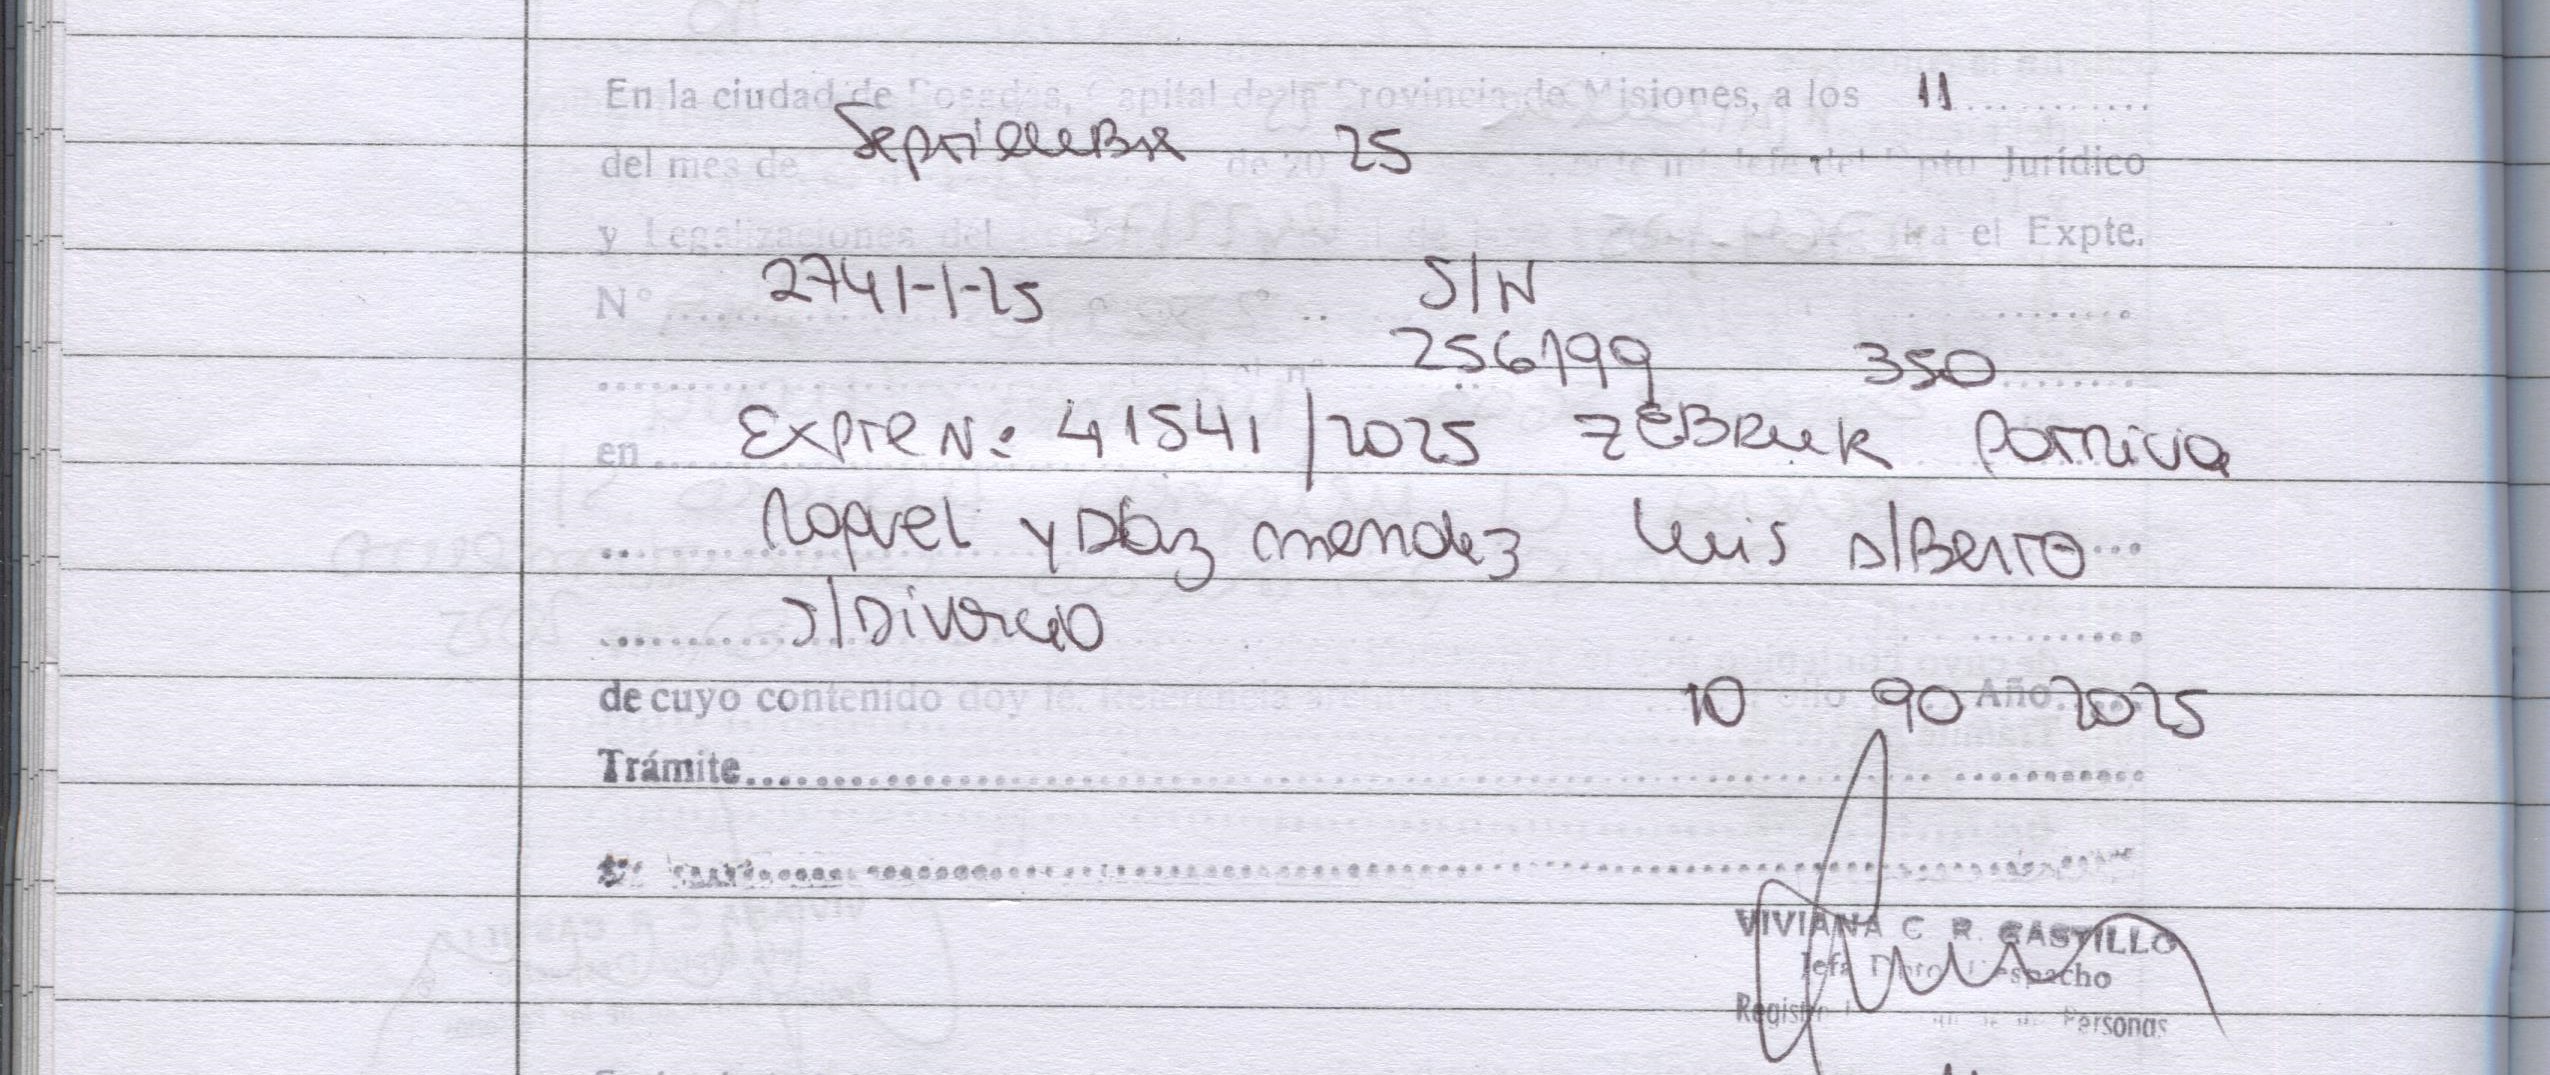 En la ciudad de Posadas, Capital de la Provincia de Misiones, a los 11
del mes de Septiembre de 20 25 Jefe del Dpto Jurídico
y Legalizaciones del el Expte.
N° 2741-1-25 S/N
256199 350
en Expte N: 41541/2025 ZEBRUK Patricia
Raquel y Díaz mendez Luis Alberto
S/Divorcio
de cuyo contenido doy fé. Referencia 10 90 Año 2025
Trámite
VIVIANA C. R. CASTILLO
Jefa Dpto. Despacho
Personas